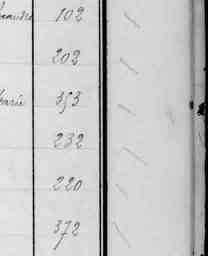 102
202
353
232
220
372